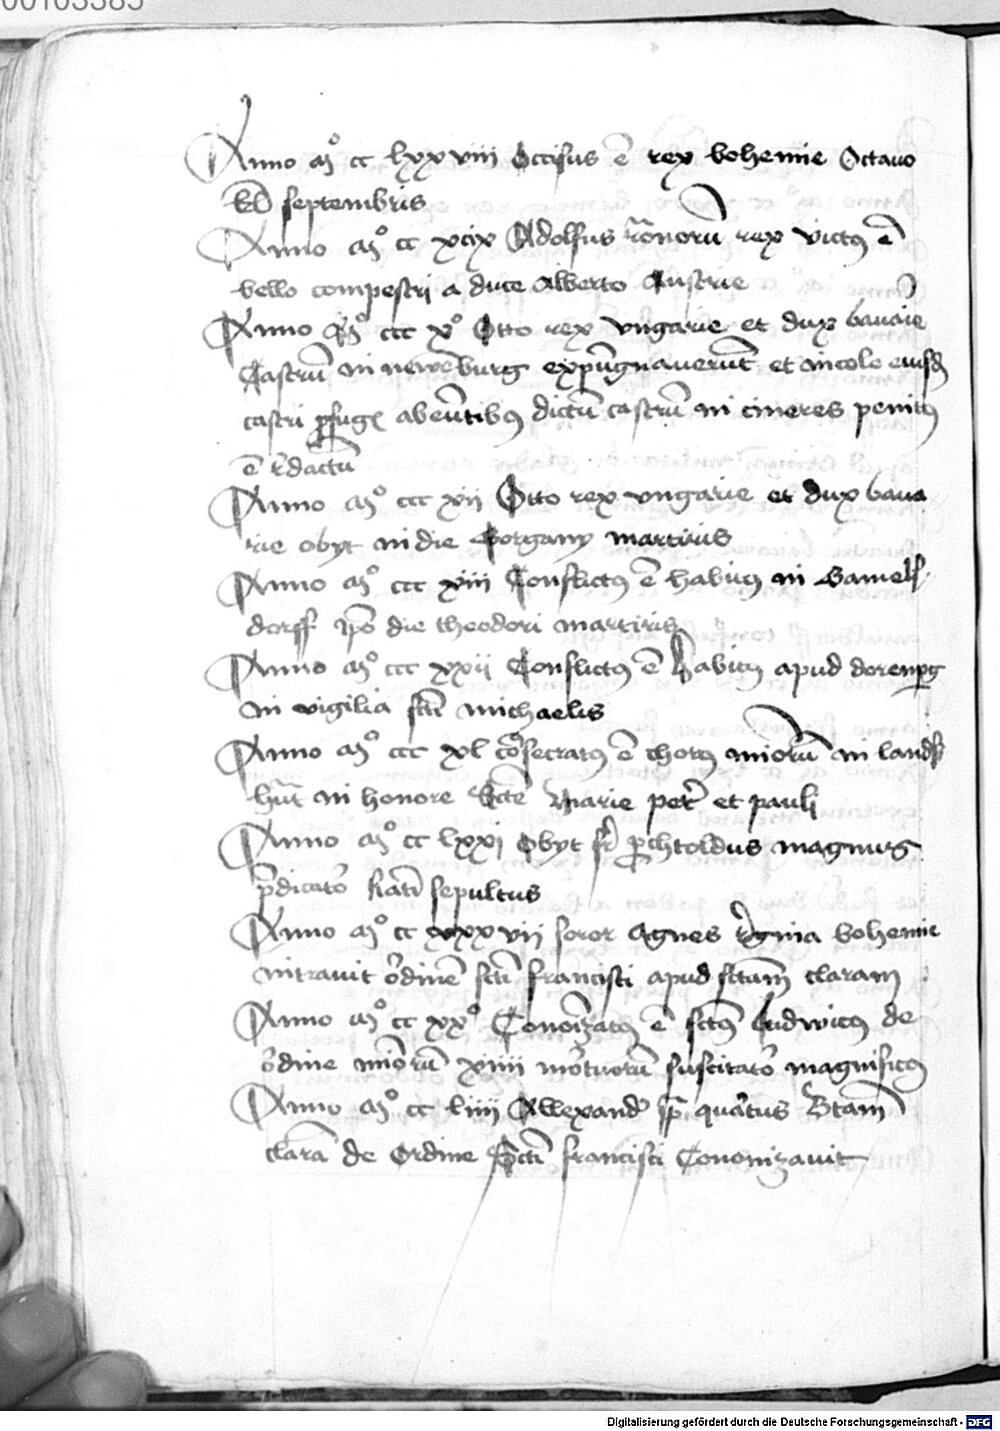 00103385
Anno mº cc lxxviii Occisus ē rex bohemie Octavo
kl septembris
Anno mº cc xcix Adolfus Rōnorū rex victꝰ ē
bello compestri a duce Alberto Austrie
Anno mº ccc xº Otto rex ungarie et dux bavarie
Castrū in newēburg expūgnaverūt et incole eiusdē
castri ꝓfugꝭ abeūtibꝰ dictū castrū in cineres penitꝰ
ē rdactū
Anno mº ccc xii Otto rex ungarie et dux bava
rie obyt in die Gorgany martiris
Anno mº ccc xiii Conflictꝰ ē habitꝰ in Gamels
dorff ipō die theodori martiris
Anno mº ccc xxii Conflictꝰ ē habitꝰ apud dorenpg
in vigilia scti michaelis
Anno mº ccc xl cōsecratꝰ ē chorꝰ miōrū in lands
hūt in honore Scte Marie petr et pauli
Anno mº cc lxxi Obyt fr ꝑchtoldus magnus
p̄dicator Rati sepultus
Anno mº cc xxxvii soror Agnes Regina bohemie
intravit ordinē scti francisci apud sctam claram
Anno mº cc xxº Conoizatꝰ ē sctꝰ ludwicꝰ de
ordine miōrū xiiii mortuorū suscitator magnificꝰ
Anno mº cc liiii Allexander pp quartus Btam
clarā de Ordine Scti francisci Cononizavit
Digitalisierung gefördert durch die Deutsche Forschungsgemeinschaft - DFG